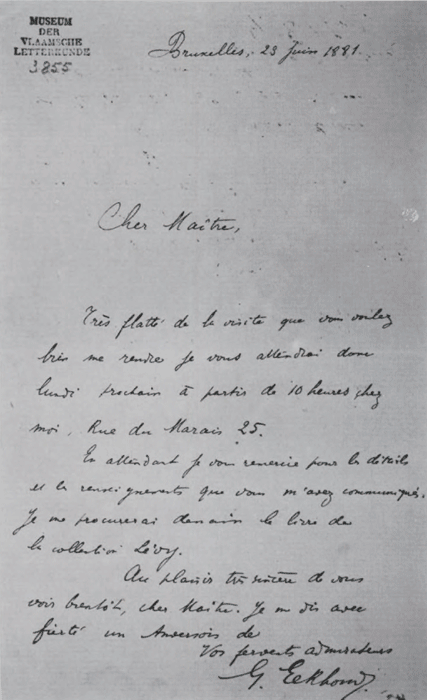 MUSEUM
DER
VLAAMSCHE
LETTERKUNDE
3855
Bruxelles, 23 Juin 1881.
Cher Maître,
Très flatté de la visite que vous voulez
bien me rendre je vous attendrai donc
lundi prochain à partir de 10 heures chez
moi, Rue du Marais 25.
En attendant je vous remercie pour les détails
et les renseignements que vous m'avez communiqués.
Je me procurerai demain le livre de
la collection Lévy.
Au plaisir très sincère de vous
voir bientôt, cher Maître. Je me dis avec
fierté un Anversois de
Vos fervents admirateurs
G. Eekhoud